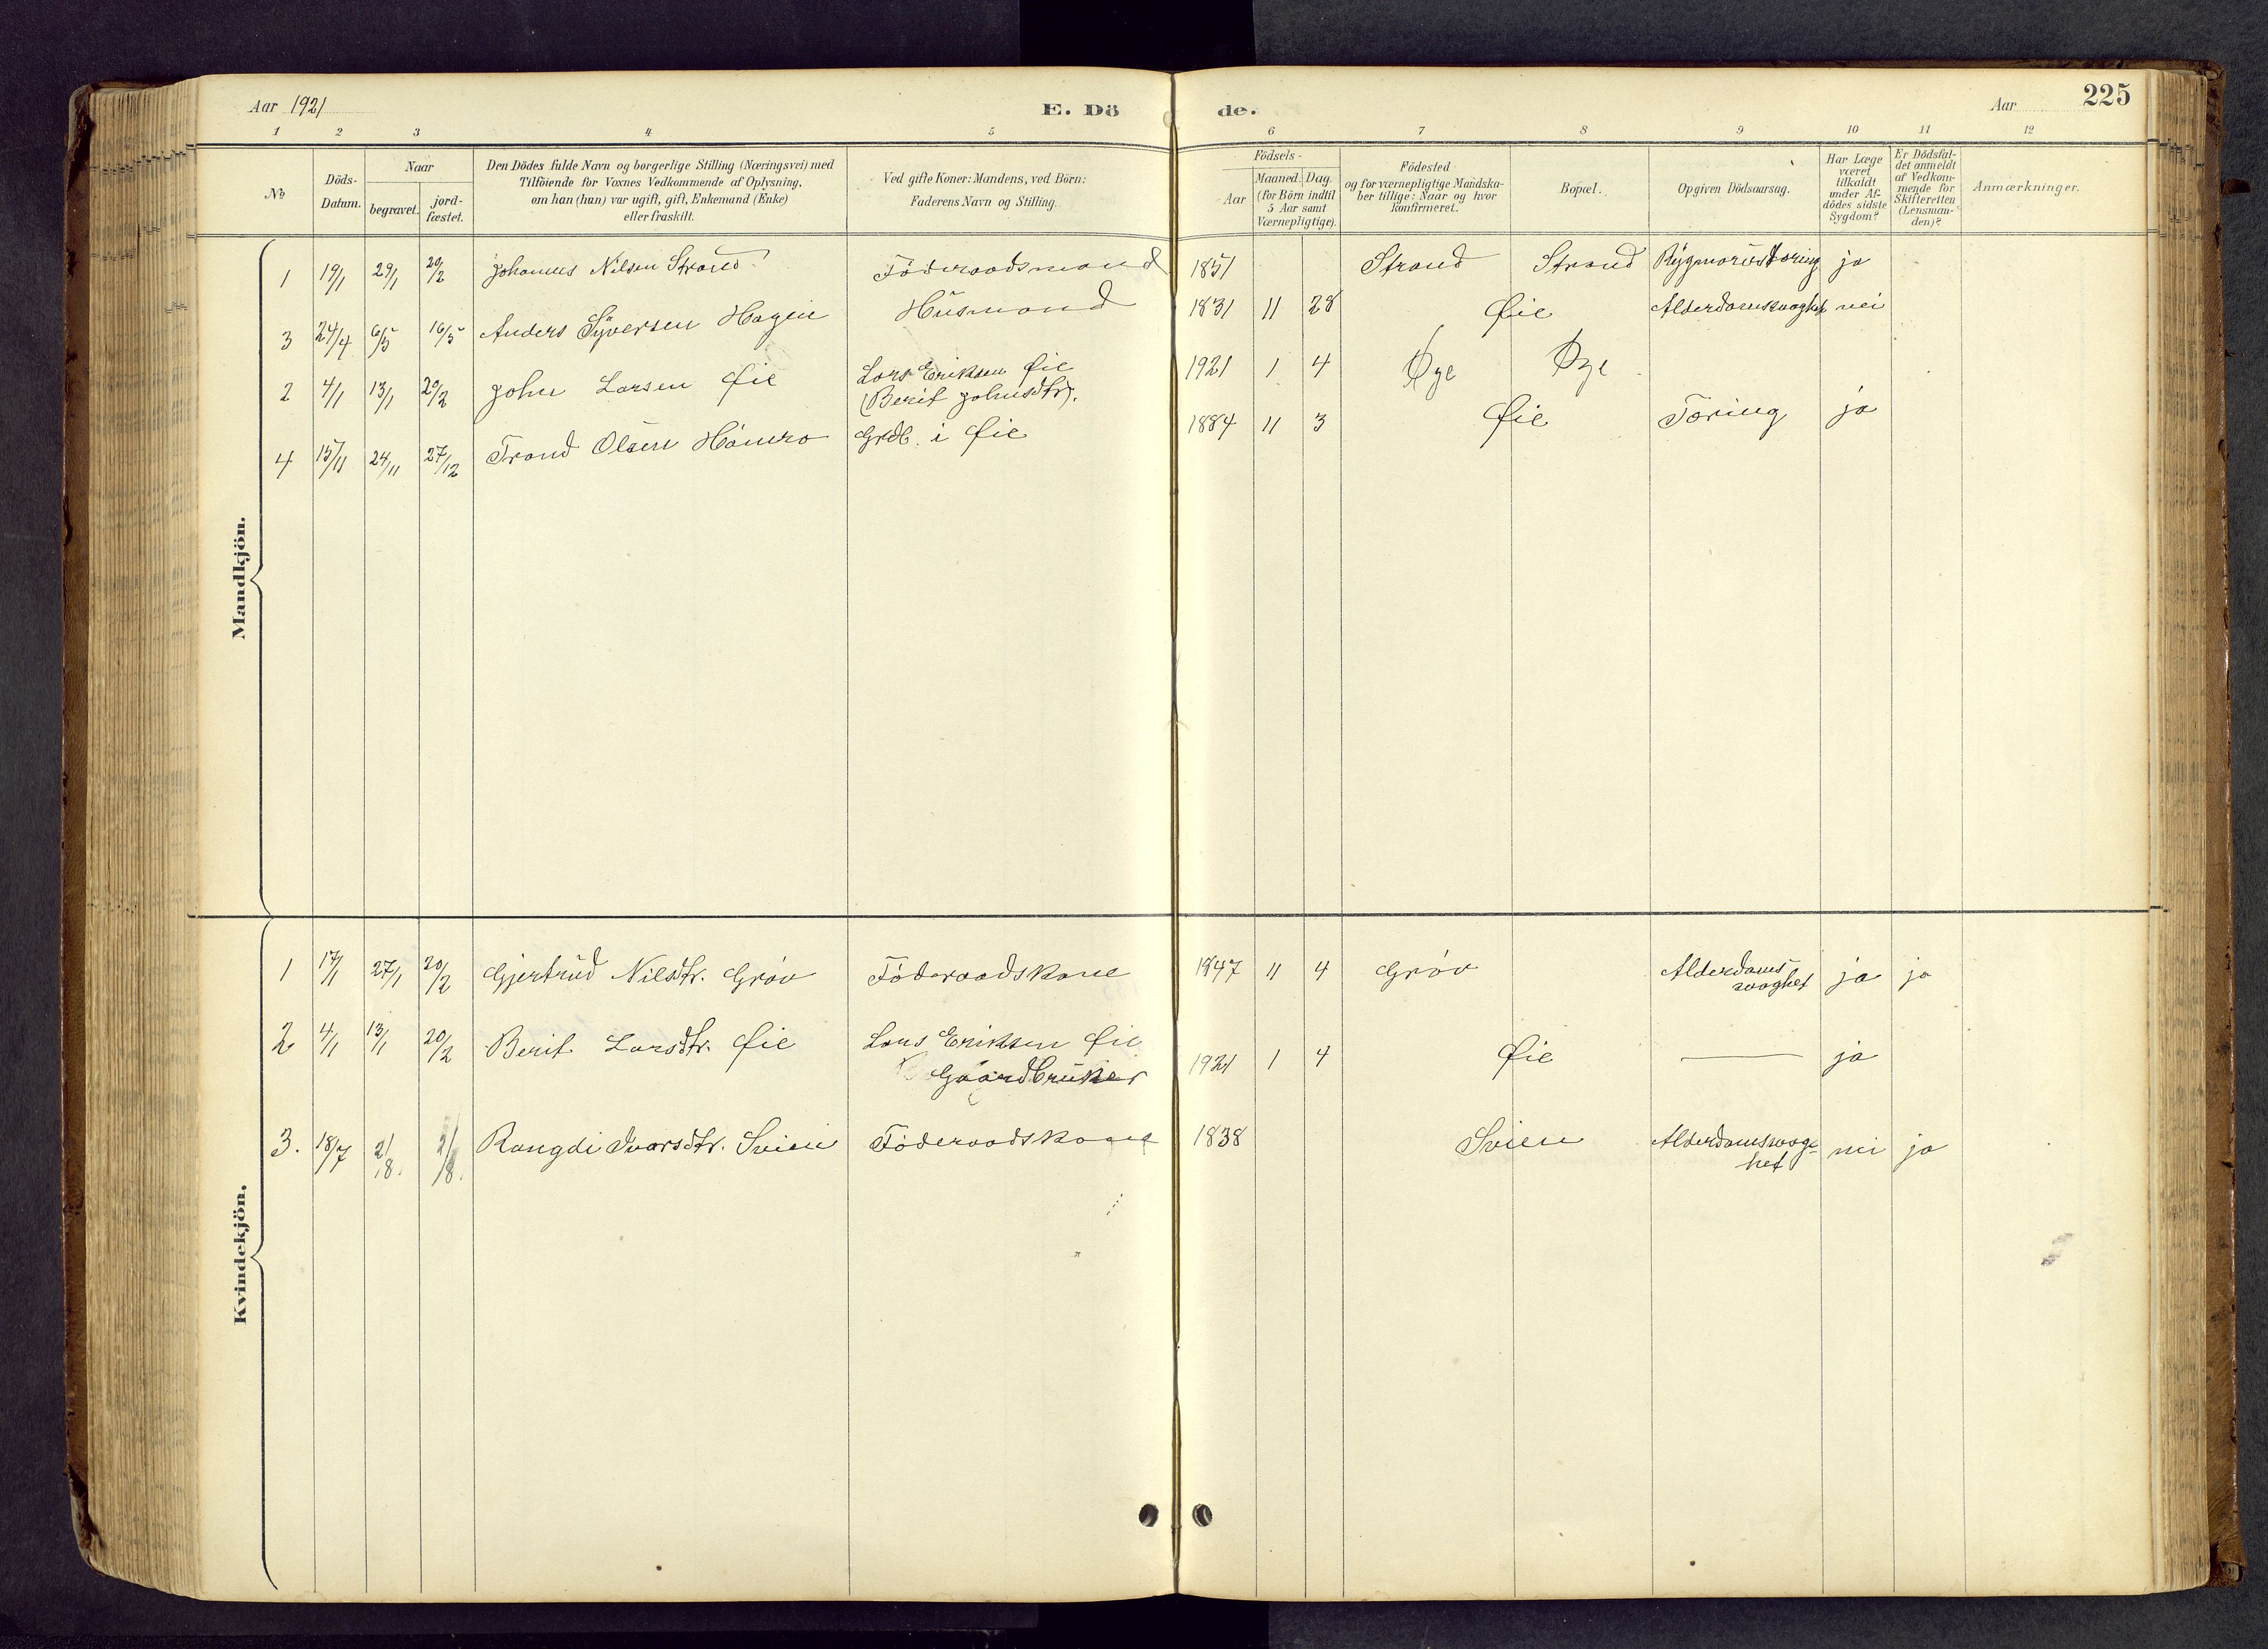 Aar 1921 E. Dö de. Aar 225
1 2 3 4 5 6 7 8 9 10 11 12
No.
Döds-
Datum.
Naar
begravet.
jord-
fæstet.
Den Dödes fulde Navn og borgerlige Stilling (Næringsvei) med
Tilföiende for Voxnes Vedkommende af Oplysning,
om han (hun) var ugift, gift, Enkemand (Enke)
eller fraskilt.
Ved gifte Koner: Mandens, ved Börn:
Faderens Navn og Stilling.
Födsels-
Aar
Maaned. Dag.
(for Börn indtil
5 Aar samt
Værnepligtige).
Födested
og for værnepligtige Mandska-
ber tillige: Naar og hvor
konfirmeret.
Bopæl.
Opgiven Dödsaarsag.
Har Læge
været
tilkaldt
under Af-
dödes sidste
Sygdom?
Er Dödsfal-
det anmeldt
af Vedkom-
mende for
Skifteretten
(Lensman-
den)?
Anmærkninger.
Mandkjön.
1 19/1 29/1 20/2 Johannes Nilsen Strand Föderaadsmand 1851 Strand Strand Rygmarvstæring ja
3 24/4 6/5 16/5 Anders Syversen Hagen Husmand 1831 11 28 Øie Alderdomssvaghet nei
2 4/1 13/1 20/2 John Larsen Øie Lars Eriksen Øie
(Berit Johnsdtr). 1921 1 4 Øye Øye
4 15/11 24/11 27/12 Trond Olsen Hamro Grdb. i Øie 1884 11 3 Øie Tæring ja
Kvindekjön.
1 17/1 27/1 20/2 Gjertrud Nilsdtr. Grøv Föderaadskone 1847 11 4 Grøv Alderdoms
svaghet ja ja
2 4/1 13/1 20/2 Berit Larsdtr. Øie Lars Eriksen Øie
Gaardbruker 1921 1 4 Øie — ja
3. 18/7 2/8. 2/8. Rangdi Ivarsdtr. Svien Föderaadskone 1838 Svien Alderdomssvag-
het nei ja